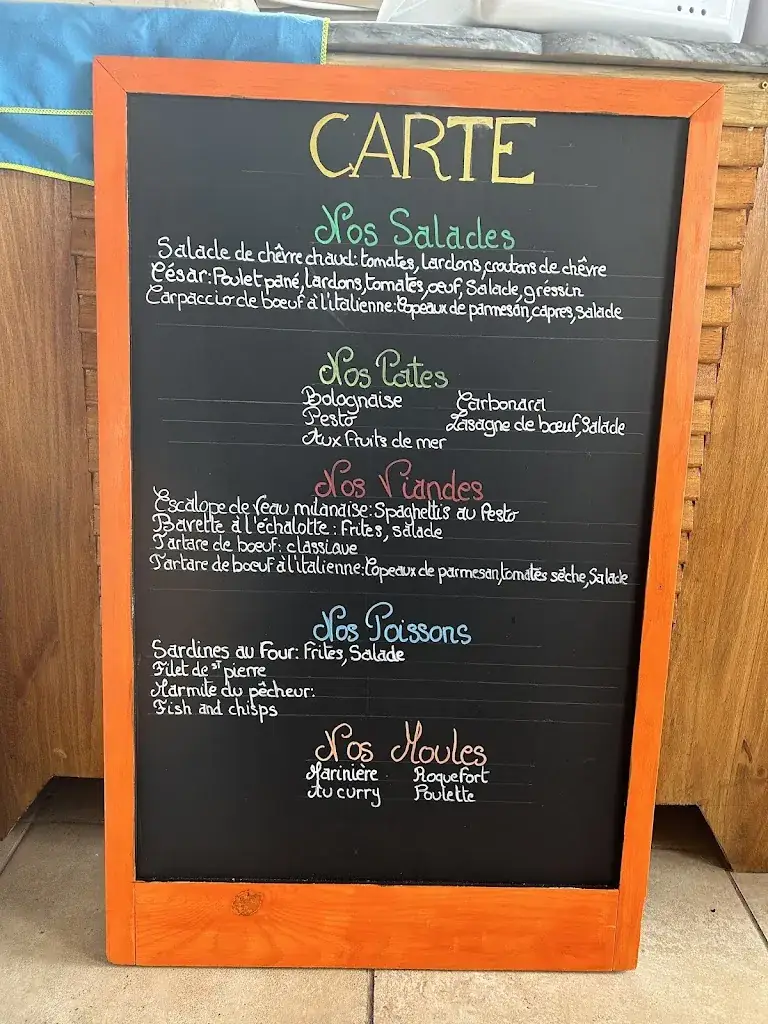 CARTE
Nos Salades
Salade de chêvre chaud: tomates, lardons, croutons de chêvre
César: Poulet pané, lardons, tomates, oeuf, Salade, gressin
Carpaccio de boeuf à l'italienne: Copeaux de parmesan, capres, salade
Nos Pates
Bolognaise Carbonara
Pesto Lasagne de boeuf, Salade
Aux fruits de mer
Nos Viandes
Escalope de Veau milanaise: Spaghettis au Pesto
Bavette à l'échalotte: Frites, salade
Tartare de boeuf: classique
Tartare de boeuf à l'italienne: Copeaux de parmesan, tomates sêche, Salade
Nos Poissons
Sardines au Four: Frites, Salade
Filet de ST pierre
Marmite du pêcheur:
Fish and chisps
Nos Moules
Marinière Roquefort
Au curry Poulette